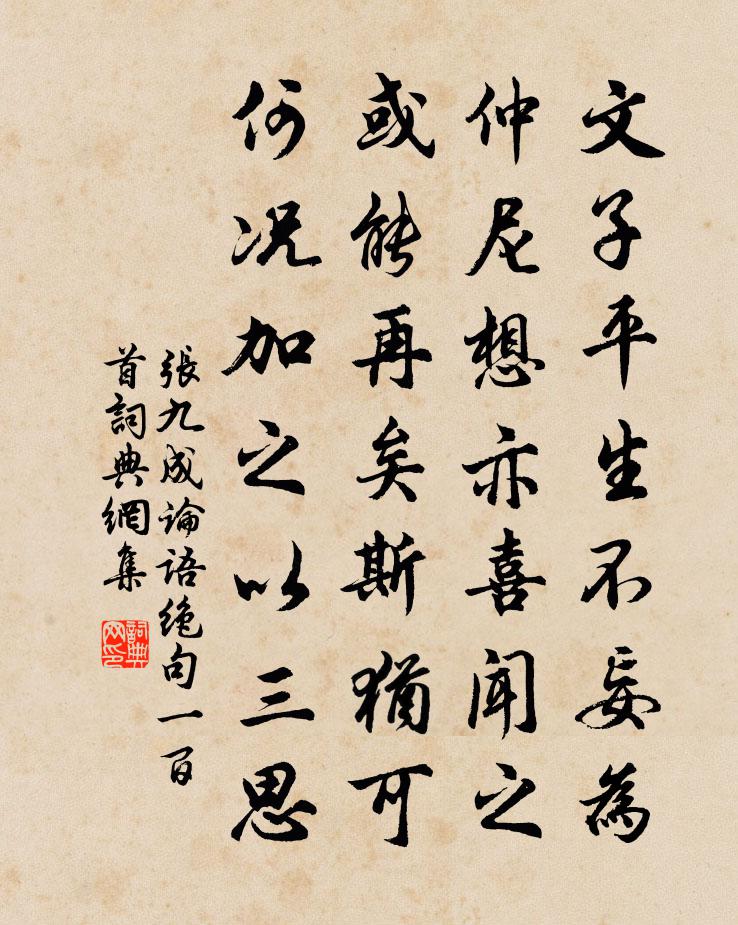 文子平生不妄為
仲尼想亦喜聞之
或能再矣斯猶可
何况加之以三思
張九成論語絶句一百
首詞典網集
詞典
网印